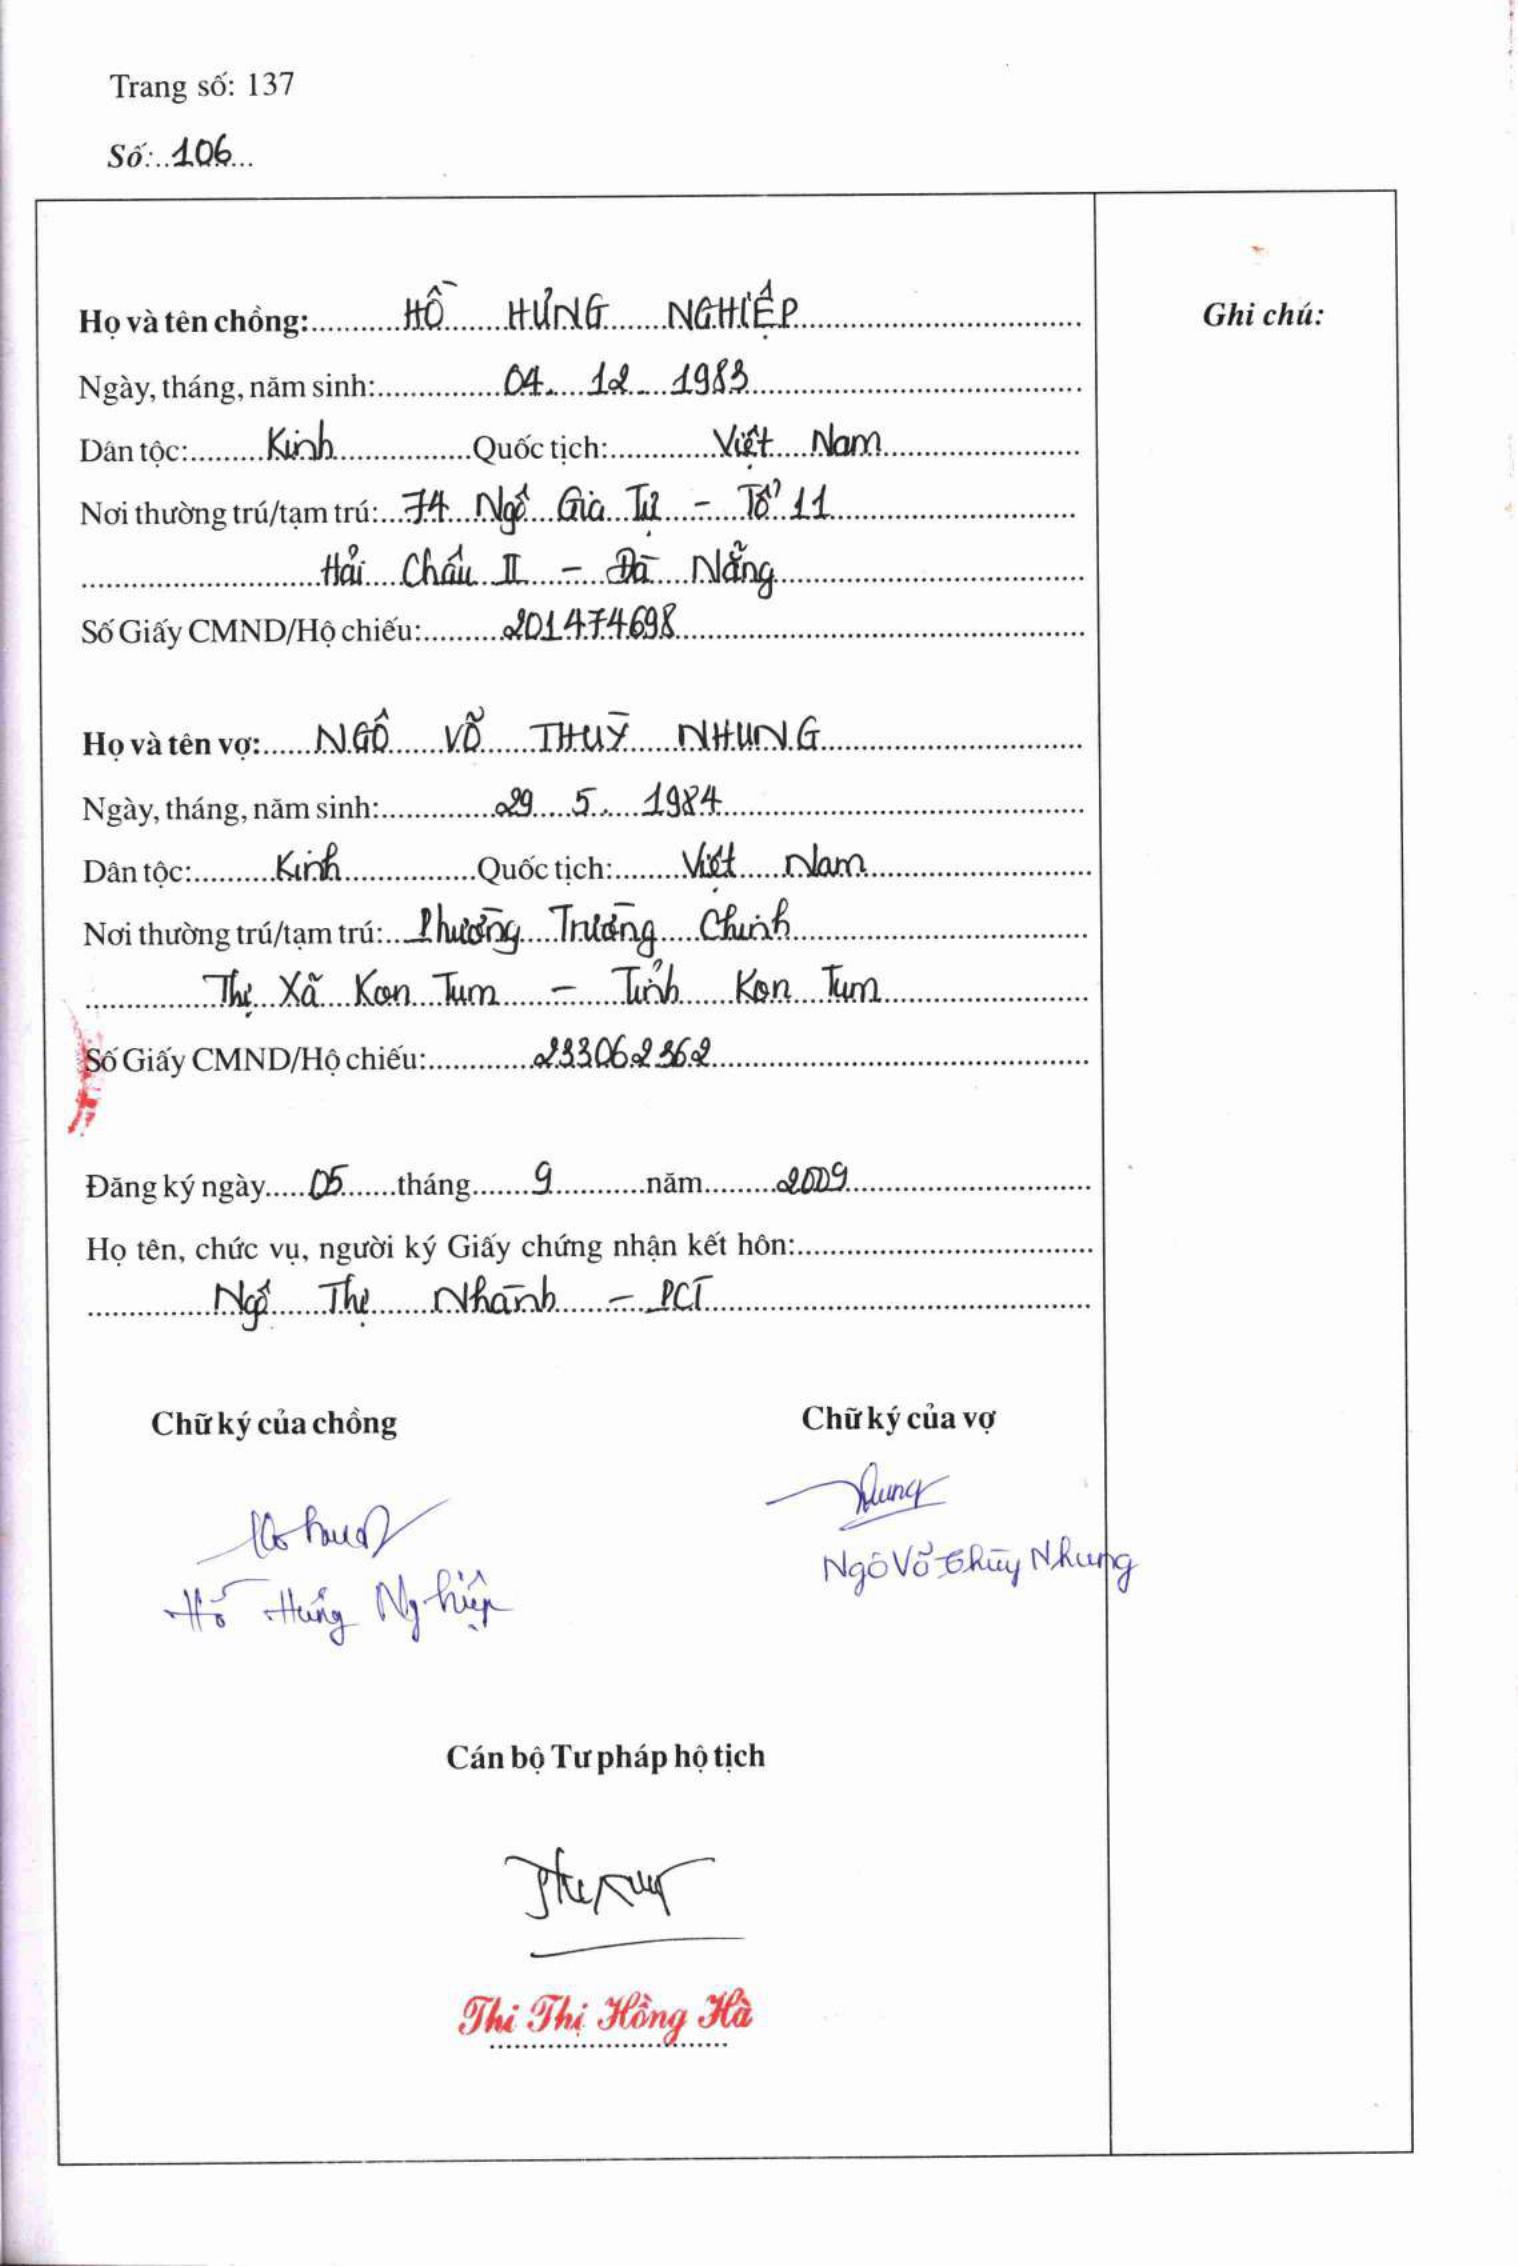 Trang số: 137
Số: 106
Họ và tên chồng: HỒ HƯNG NGHIỆP
Ghi chú:
Ngày, tháng, năm sinh: 04. 12. 1983
Dân tộc: Kinh Quốc tịch: Việt Nam
Nơi thường trú/tạm trú: 74 Ngô Gia Tự - Tổ 11
Hải Châu II - Đà Nẵng
Số Giấy CMND/Hộ chiếu: 201474698
Họ và tên vợ: NGÔ VÕ THUỲ NHUNG
Ngày, tháng, năm sinh: 29. 5. 1984
Dân tộc: Kinh Quốc tịch: Việt Nam
Nơi thường trú/tạm trú: Phường Trường Chinh
Thị Xã Kon Tum - Tỉnh Kon Tum
Số Giấy CMND/Hộ chiếu: 233062362
Đăng ký ngày 05 tháng 9 năm 2009
Họ tên, chức vụ, người ký Giấy chứng nhận kết hôn:
Ngô Thị Nhành - PCT
Chữ ký của chồng Chữ ký của vợ
Nhung
Hồ Hưng Nghiệp Ngô Võ Thùy Nhung
Cán bộ Tư pháp hộ tịch
Thi Thị Hồng Hà